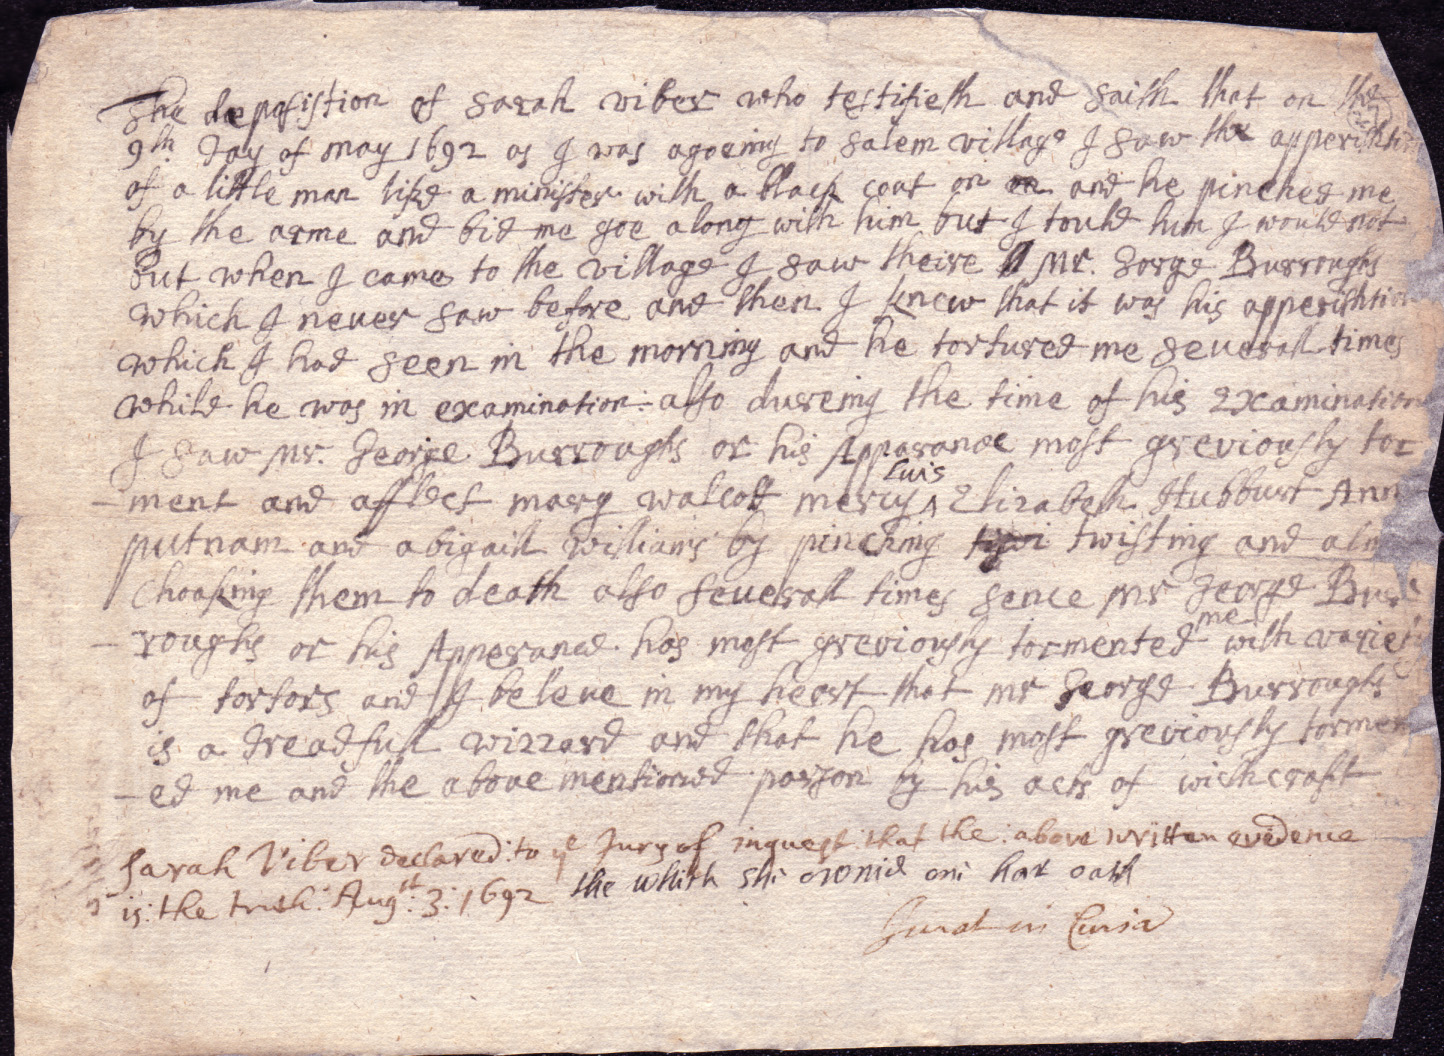 The deposistion of Sarah viber who testifieth and saith that on the
9th day of may 1692 as I was agoeing to salem village I saw the apperishtion
of a little man like a minister with a black coat on and he pinched me
by the arme and bid me goe along with him but I tould him I would not
but when I came to the village I saw theire Mr. Gorge Burroughs
which I never saw before and then I knew that it was his apperishtion
which I had seen in the morning and he tortured me severall times
while he was in examination: also dureing the time of his Examination
I saw Mr. George Burroughs or his Apperance most greviously tor
-ment and afflect mary walcott mercy ^ Luis Elizabeth Hubburt Ann
putnam and abigaill williams by pinching twisting and alm
choaking them to death also severall times sence Mr George Bur
-roughs or his Apperance has most greviously tormented me with variety
of tortors and I beleve in my heart that mr George Burroughs
is a dreadfull wizzard and that he has most greviously torment
-ed me and the above mentioned parson by his acts of wicthcraft
Sarah Viber declared: to ye Jury of inquest: that the: above written evedence
is: the truth: Augst: 3: 1692 the which she owned on har oath
Jurat in Curia